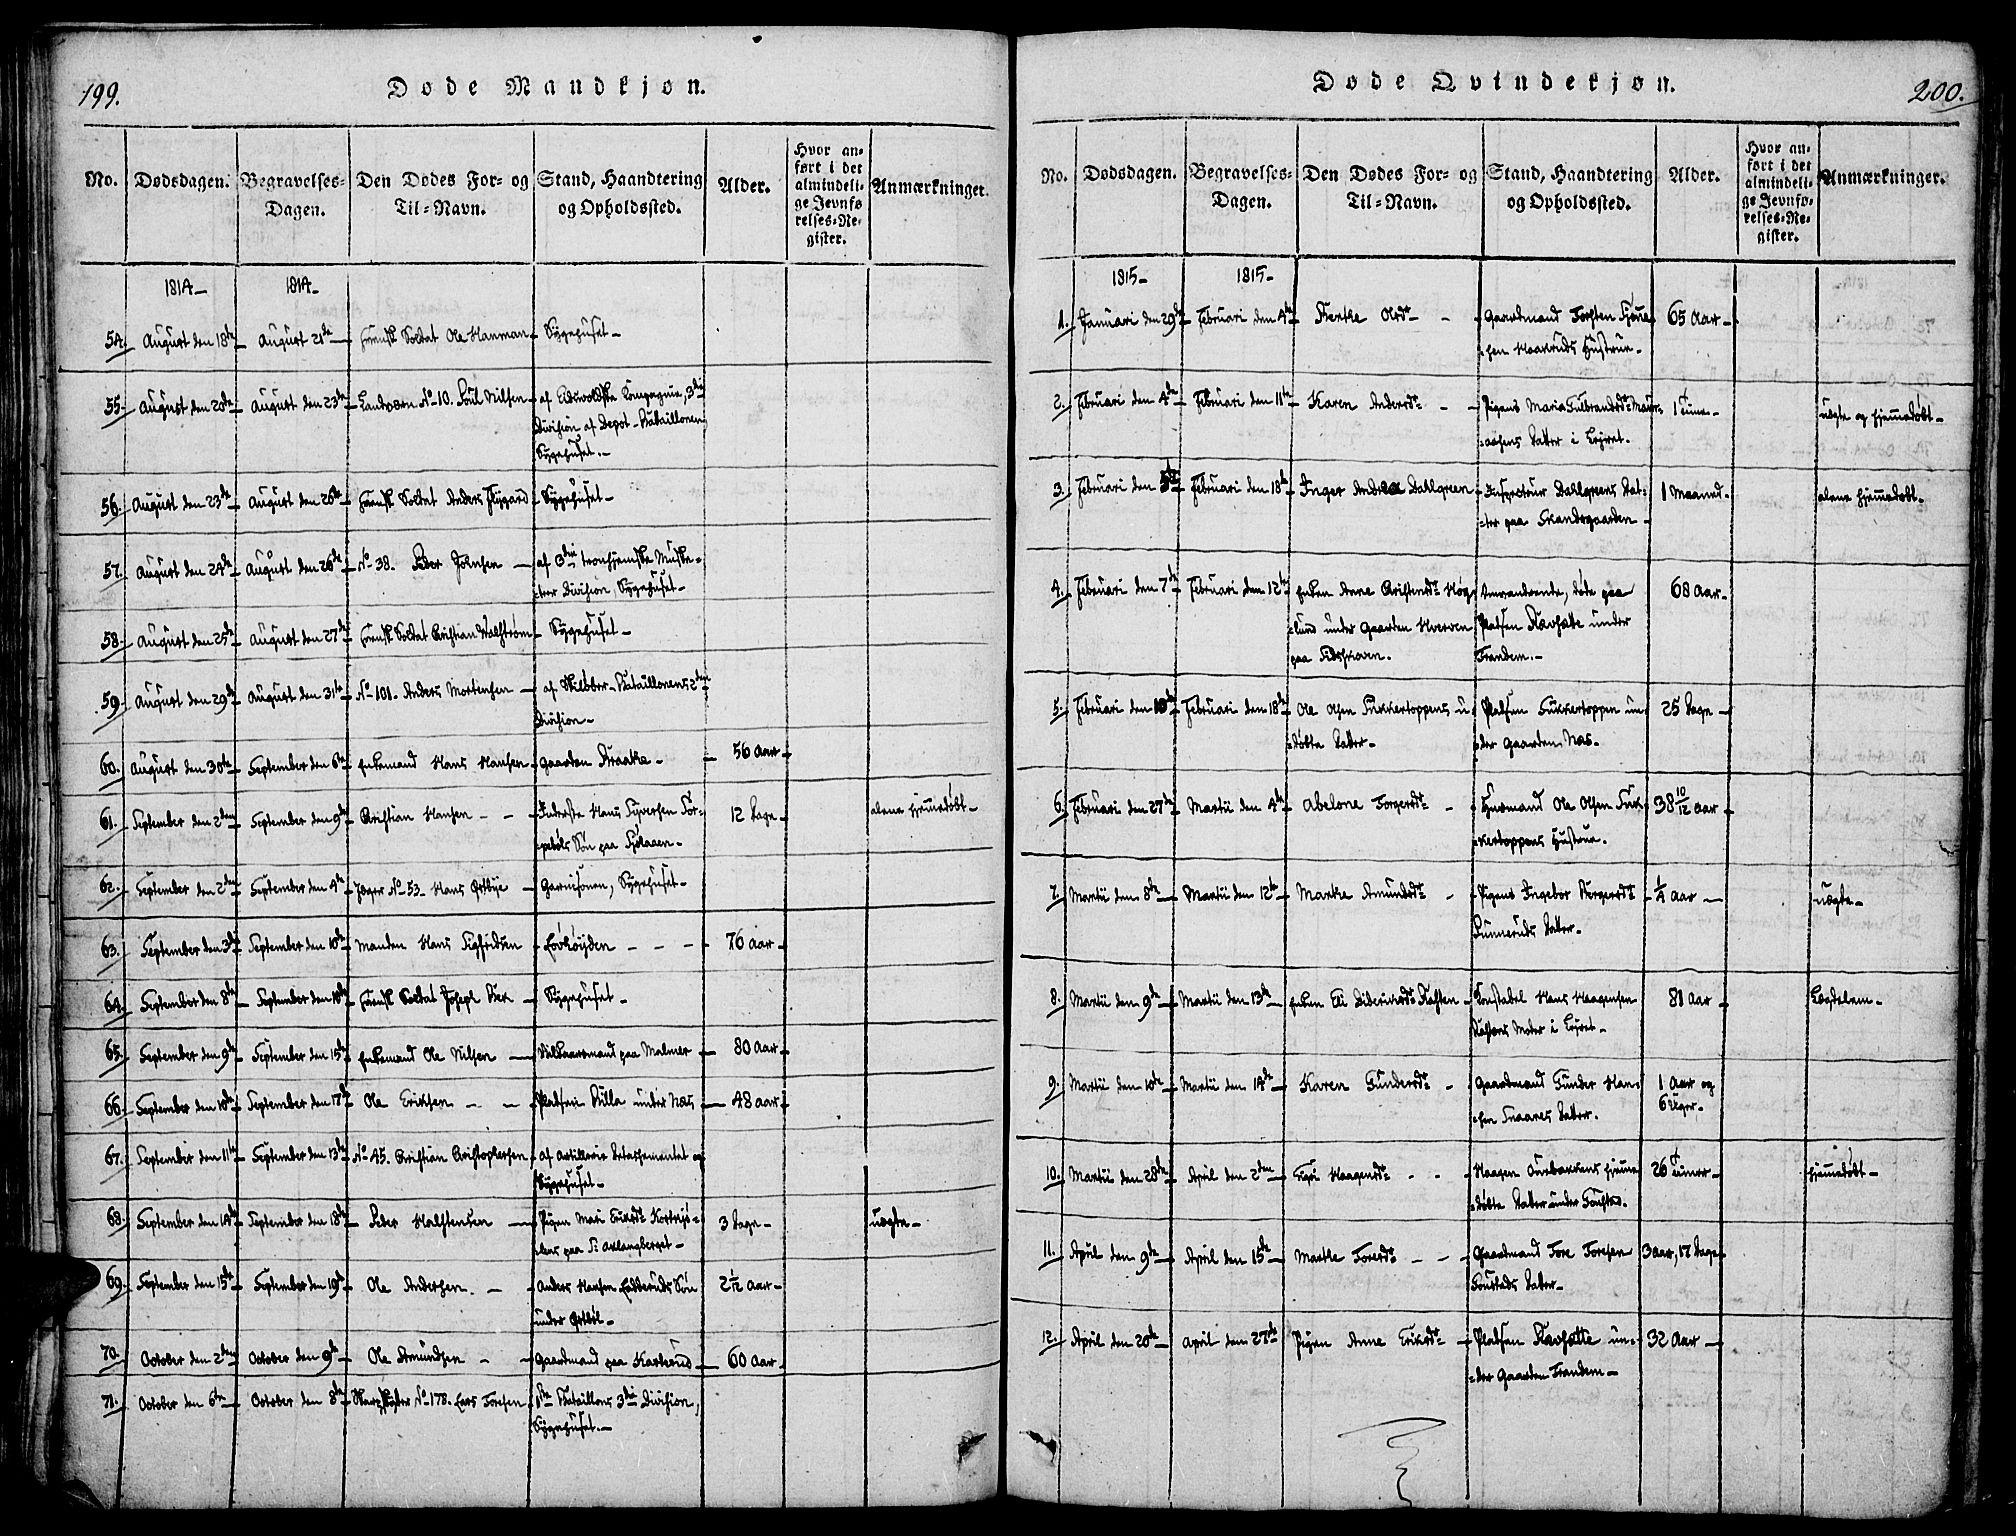 199.
Døde Mandkjøn.
No. Dødsdagen. Begravelses-Dagen. Den Dødes For- og Til-Navn. Stand, Haandtering og Opholdssted. Alder. Hvor anført i det almindelige Jevnførelses-Register. Anmærkninger.
1814 – 1814 –
54. August den 18de August 21de Svensk Soldat Ole Hanman Sygehuset –
55. August den 20de August den 23de Landværn No 10. Poul Nilsen af Eidsvoldske Compagnie, 3die
Division af Depot-Bataillonen
Sygehuset. –
56. August den 23de August den 26de Svensk Soldat Anders Flygard Sygehuset –
57. August den 24de August den 26de No 38. Peder Johnsen af 3die tronhjemske Muske-
-teer Division, Sygehuset –
58. August den 25de August den 27de Svensk Soldat Christian Walstrøm Sygehuset –
59. August den 29de August den 31te No 101. Anders Mortensen af Skiløber-Bataillonens 2den
Division –
60. August den 30te September den 6te Enkemand Hans Hansen Gaarden Braatte – 56 Aar –
61. September den 2den September den 9de Christian Hansen – – Inderste Hans Syversen Tor- 12 Dage – alene hjemmedøbt –
Søn paa
62. September den 2den September den 4de Jæger No 53. Hans Østbye Garnisonen, Sygehuset –
63. September den 3die September den 10de Manden Hans Sigfridsen Løvhøyden – – – 76 Aar –
64. September den 8de September den 10de Svensk Soldat Joseph Bex Sygehuset –
65. September den 9de September den 15de Enkemand Ole Nilsen Vilkaarsmand paa Malmer 80 Aar –
66. September den 10de September den 17de Ole Eriksen – – Pladsen Billa under Næs 48 Aar –
67. September den 11te September den 13de No 45. Christian Christophersen af Artillerie Detachementet og
Sygehuset –
68. September den 14de September den 18de Peder Halstensen Pigen Mari Eriksdr 3 Dage – uægte –
paa St. Aslangberget –
69. September den 15de September den 19de Ole Andersen – – Anders Hansen Søn 2 1/12 Aar –
under Østbøl –
70. October den 2den October den 9de Ole Amundsen – – Gaardmand paa Karterud 60 Aar –
71. October den 6te October den 8de No 178. Lars Toresen 1te Bataillons 3die Division,
Sygehuset. –
200.
Døde Qvindekjøn.
No. Dødsdagen. Begravelses-Dagen. Den Dødes For- og Til-Navn. Stand, Haandtering og Opholdssted. Alder. Hvor anført i det almindelige Jevnførelses-Register. Anmærkninger.
1815 – 1815 –
1. Januari den 29de Februari den 4de Sterke Olsdr – Gaardmand Torsten 65 Aar –
-sen Haakruds Hustrue –
2. Februari den 4de Februari den 11te Karen Andersdr – – Pigens Maria Gulbrandsdr 1 Time – uægte og hjemmedøbt –
Datter i Lejret –
3. Februari den 5te Februari den 18de Inger Andrea Dallgreen Inspecteur Dallgreens Dat- 1 Maaned alene hjemmedøbt –
-ter paa Skandsgaarden –
4. Februari den 7de Februari den 12te Enken Anne Christensdr Høg- Omvandrende, døde paa 68 Aar –
-lund under Gaarden Hverven Pladsen Kavsætte under
paa Eidskoven. Frandem. –
5. Februari den 10de Februari den 18de Ole Olsen Sukkertoppens u- Pladsen Sukkertoppen un- 25 Dage –
døbte Datter – -der Gaarden Næs –
6. Februari den 27de Martii den 4de Abelone Torgersdr – Huusmand Ole Olsen Suk- 38 10/12 Aar –
-kertoppens Hustrue –
7. Martii den 8de Martii den 12te Marthe Amundsdr – Pigens Ingebor Børgersdr 1/4 Aar – uægte –
Datter –
8. Martii den 9de Martii den 13de Enken Eli Didericksdr Kasten Constabel Hans Haagensen 81 Aar – Lægdelem –
Kastens Moder i Lejret –
9. Martii den 10de Martii den 14de Karen Gundersdr – Gaardmand Gunder Han- 1 Aar og
-sen Snaares Datter. 6 Uger –
10. Martii den 28de April den 2den Sigri Haagensdr – – Haagen hjemme- 26 Timer – hjemmedøbt –
døbte Datter under Tonstad.
11. April den 9de April den 15de Marthe Toresdr – – Gaardmand Tore Toresen 3 Aar, 17 Dage
Tonstads Datter –
12. April den 20de April den 27de Pigen Anne Eriksdr – Pladsen Kavsætte un- 32 Aar –
-der Gaarden Frandem –